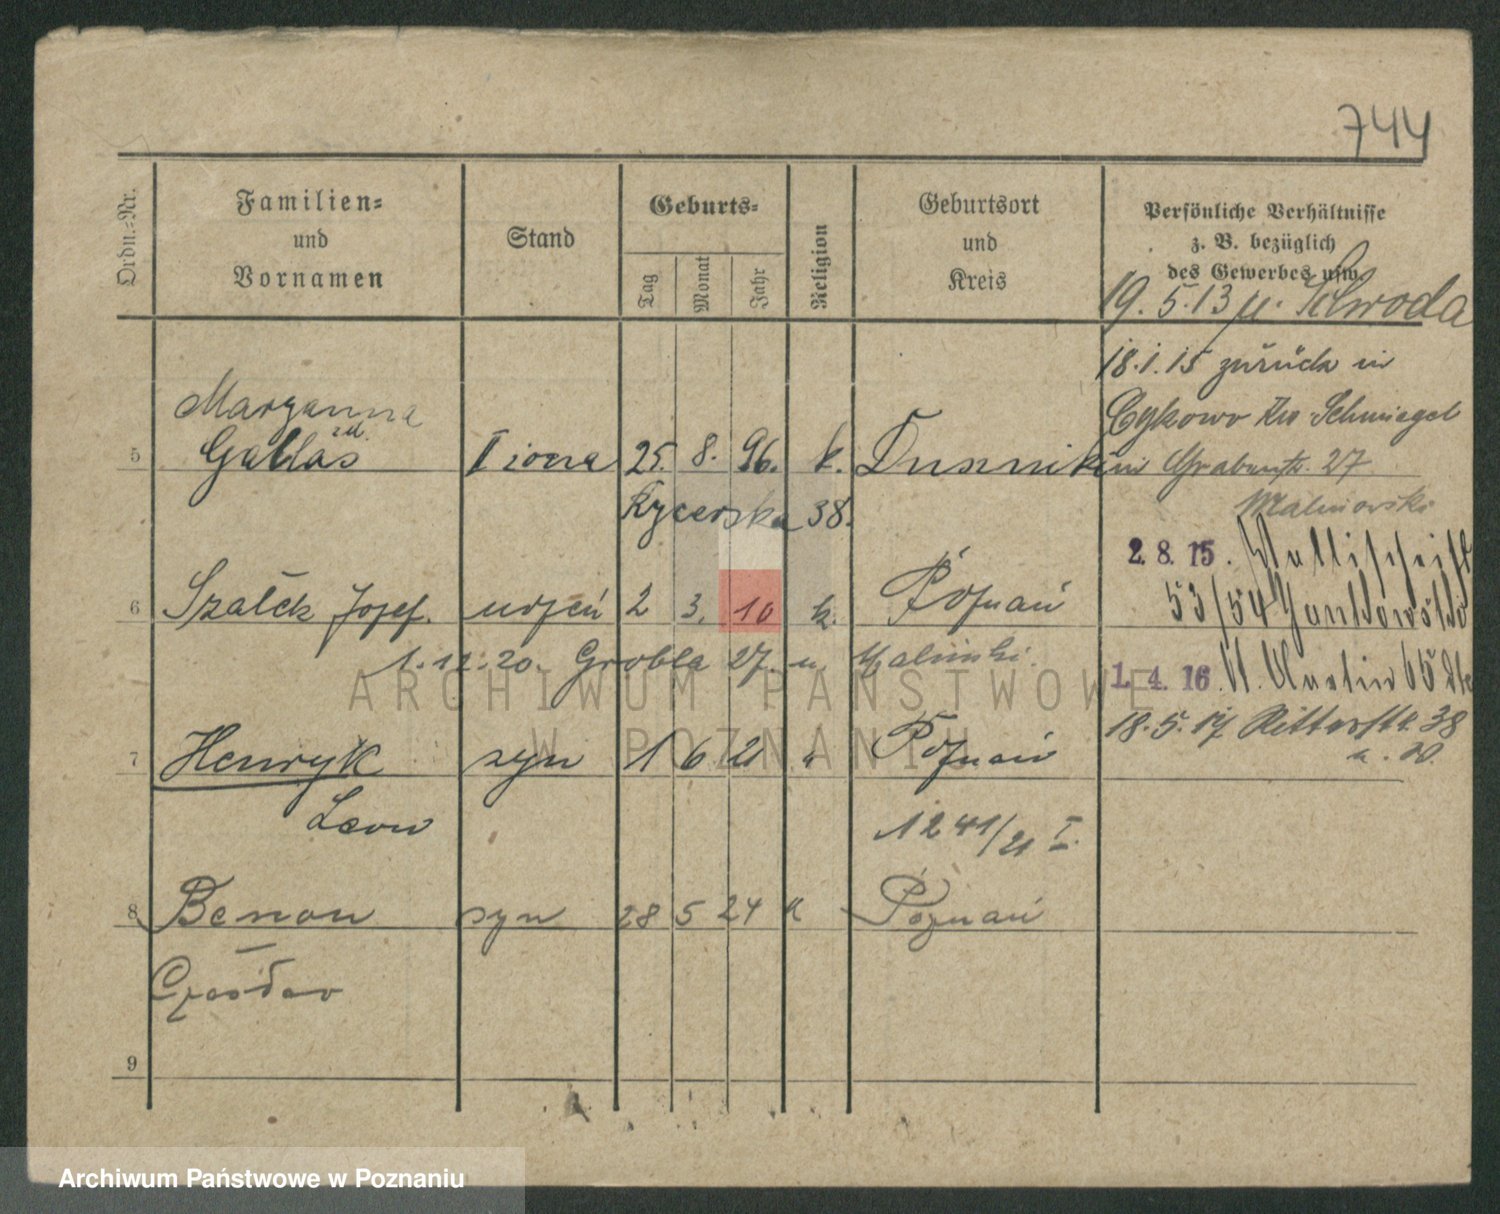 744
Ordn.-Nr.
Familien-
und
Vornamen
Stand
Geburts-
Tag
Monat
Jahr
Religion
Geburtsort
und
Kreis
Persönliche Verhältnisse
z. B. bezüglich
des Gewerbes usw.
19. 5. 13 Schroda
18. 1. 15 zurück in
Cykowo Krs Schmiegel
Marganna
5 Gallas II żona 25. 8. 96. k. Dusznik
Grabenstr. 27
Rycerska 38.
Malinowski
2. 8. 15. Wallischei
53/54
6 Szalek Josef. uczeń 2 3. 10 k. Poznań
1. 12. 20. Grobla 27. u Malinski.
1. 4. 16. St. Martin 65
ARCHIWUM PAŃSTWOWE
W POZNANIU
18. 5. 17 Ritterstr. 38
7 Henryk syn 1 6 21 k Poznań
Leon
1241/21 I.
8 Benon syn 28 5 24 k Poznań
Czesław
9
Archiwum Państwowe w Poznaniu